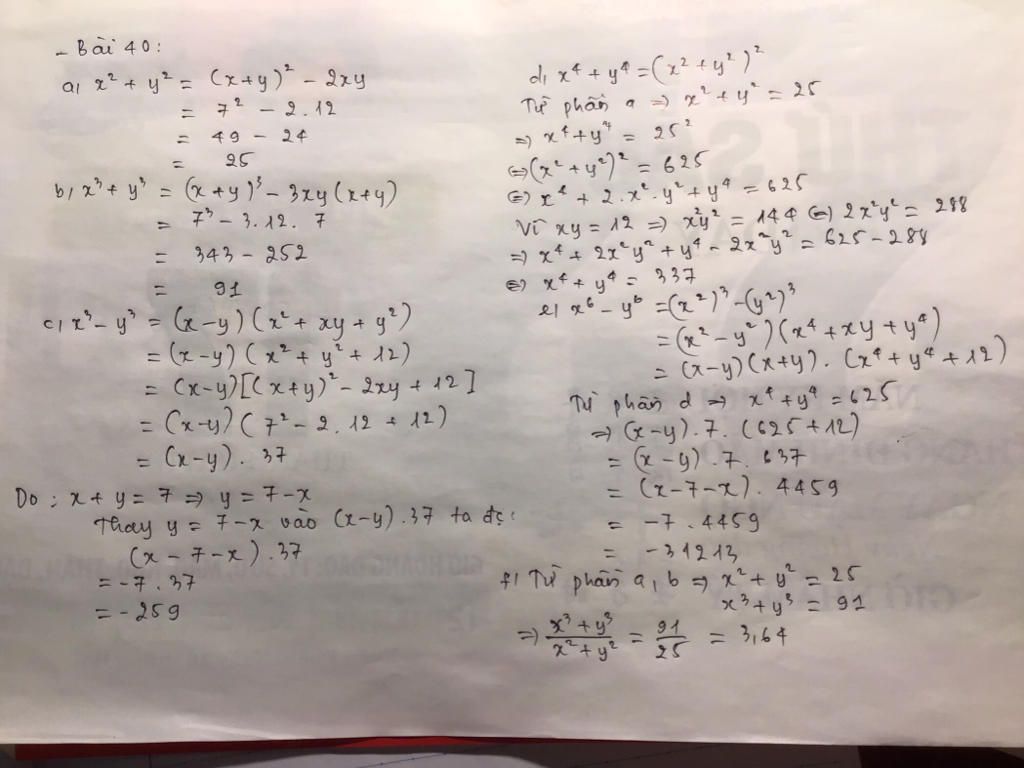 - Bài 40:
a, x² + y² = (x+y)² - 2xy
= 7² - 2.12
= 49 - 24
= 25
b, x³ + y³ = (x+y)³ - 3xy(x+y)
= 7³ - 3.12.7
= 343 - 252
= 91
c, x³ - y³ = (x-y)(x² + xy + y²)
= (x-y)(x² + y² + 12)
= (x-y)[(x+y)² - 2xy + 12]
= (x-y)(7² - 2.12 + 12)
= (x-y).37
Do: x + y = 7 => y = 7-x
Thay y = 7-x vào (x-y).37 ta đc:
(x - 7 - x).37
= -7.37
= -259
d, x⁴ + y⁴ = (x² + y²)²
Từ phần a => x² + y² = 25
=> x⁴ + y⁴ = 25²
<=> (x² + y²)² = 625
<=> x⁴ + 2.x².y² + y⁴ = 625
Vì xy = 12 => x²y² = 144 <=> 2x²y² = 288
=> x⁴ + 2x²y² + y⁴ - 2x²y² = 625 - 288
<=> x⁴ + y⁴ = 337
e, x⁶ - y⁶ = (x²)³ - (y²)³
= (x² - y²)(x⁴ + xy + y⁴)
= (x-y)(x+y).(x⁴ + y⁴ + 12)
Từ phần d => x⁴ + y⁴ = 625
=> (x-y).7.(625+12)
= (x-y).7.637
= (x-7-x).4459
= -7.4459
= -31213
f, Từ phần a, b => x² + y² = 25
x³ + y³ = 91
=> (x³ + y³)/(x² + y²) = 91/25 = 3,64